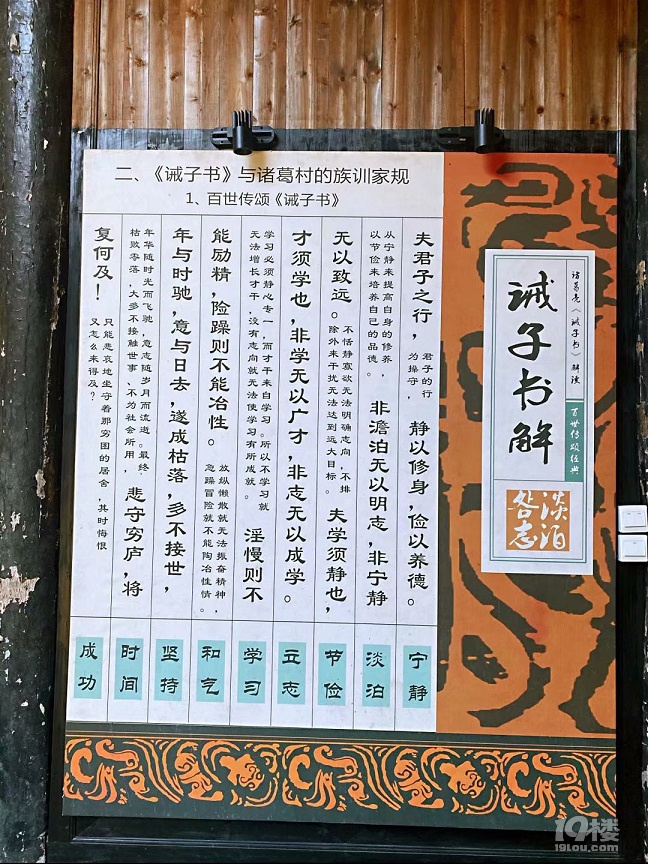 二、《诫子书》与诸葛村的族训家规
1、百世传颂《诫子书》
诸葛亮《诫子书》解读
百世传颂经典
诫子书解
淡泊
明志
夫君子之行，
君子的行
为操守，
静以修身，俭以养德。
从宁静来提高自身的修养，
以节俭来培养自己的品德。
非澹泊无以明志，非宁静
无以致远。
不恬静寡欲无法明确志向，不排
除外来干扰无法达到远大目标。
夫学须静也，
才须学也，非学无以广才，非志无以成学。
学习必须静心专一，而才干来自学习。所以不学习就
无法增长才干，没有志向就无法使学习有所成就。
淫慢则不
能励精，险躁则不能冶性。
放纵懒散就无法振奋精神，
急躁冒险就不能陶冶性情。
年与时驰，意与日去，遂成枯落，多不接世，
年华随时光而飞驰，意志随岁月而流逝。最终
枯败零落，大多不接触世事、不为社会所用，
悲守穷庐，将
复何及！
只能悲哀地坐守着那穷困的居舍，其时悔恨
又怎么来得及？
宁静
淡泊
节俭
立志
学习
和气
坚持
时间
成功
19楼
19lou.com